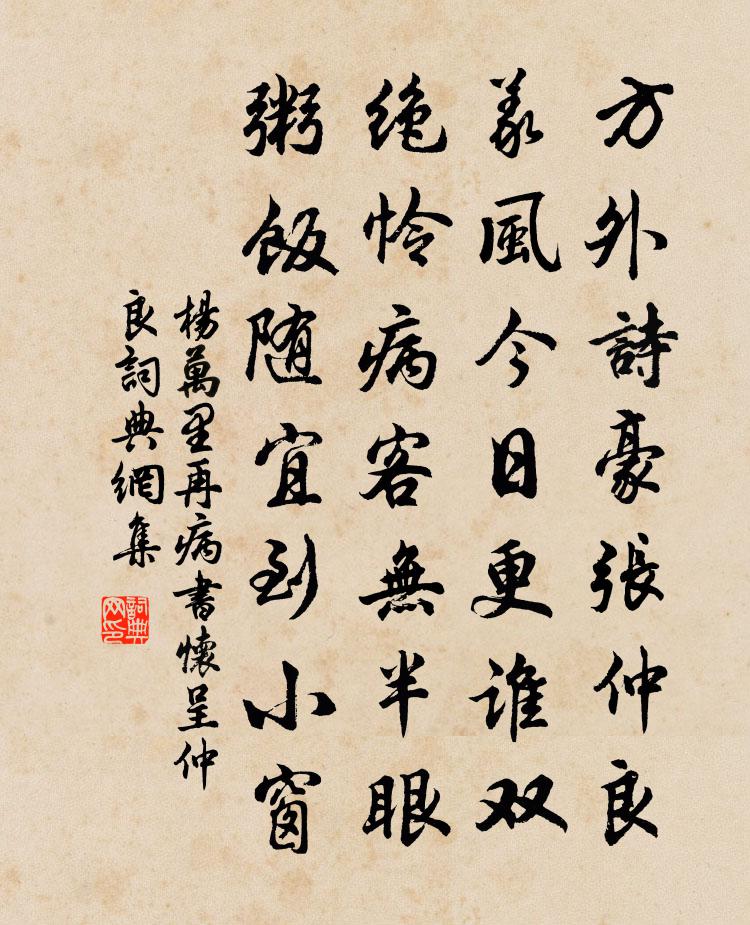 方外詩豪張仲良
義風今日更誰双
絶怜病客無半眼
粥飯随宜到小窗
楊萬里再病書懷呈仲
良詞典網集
詞典
网印